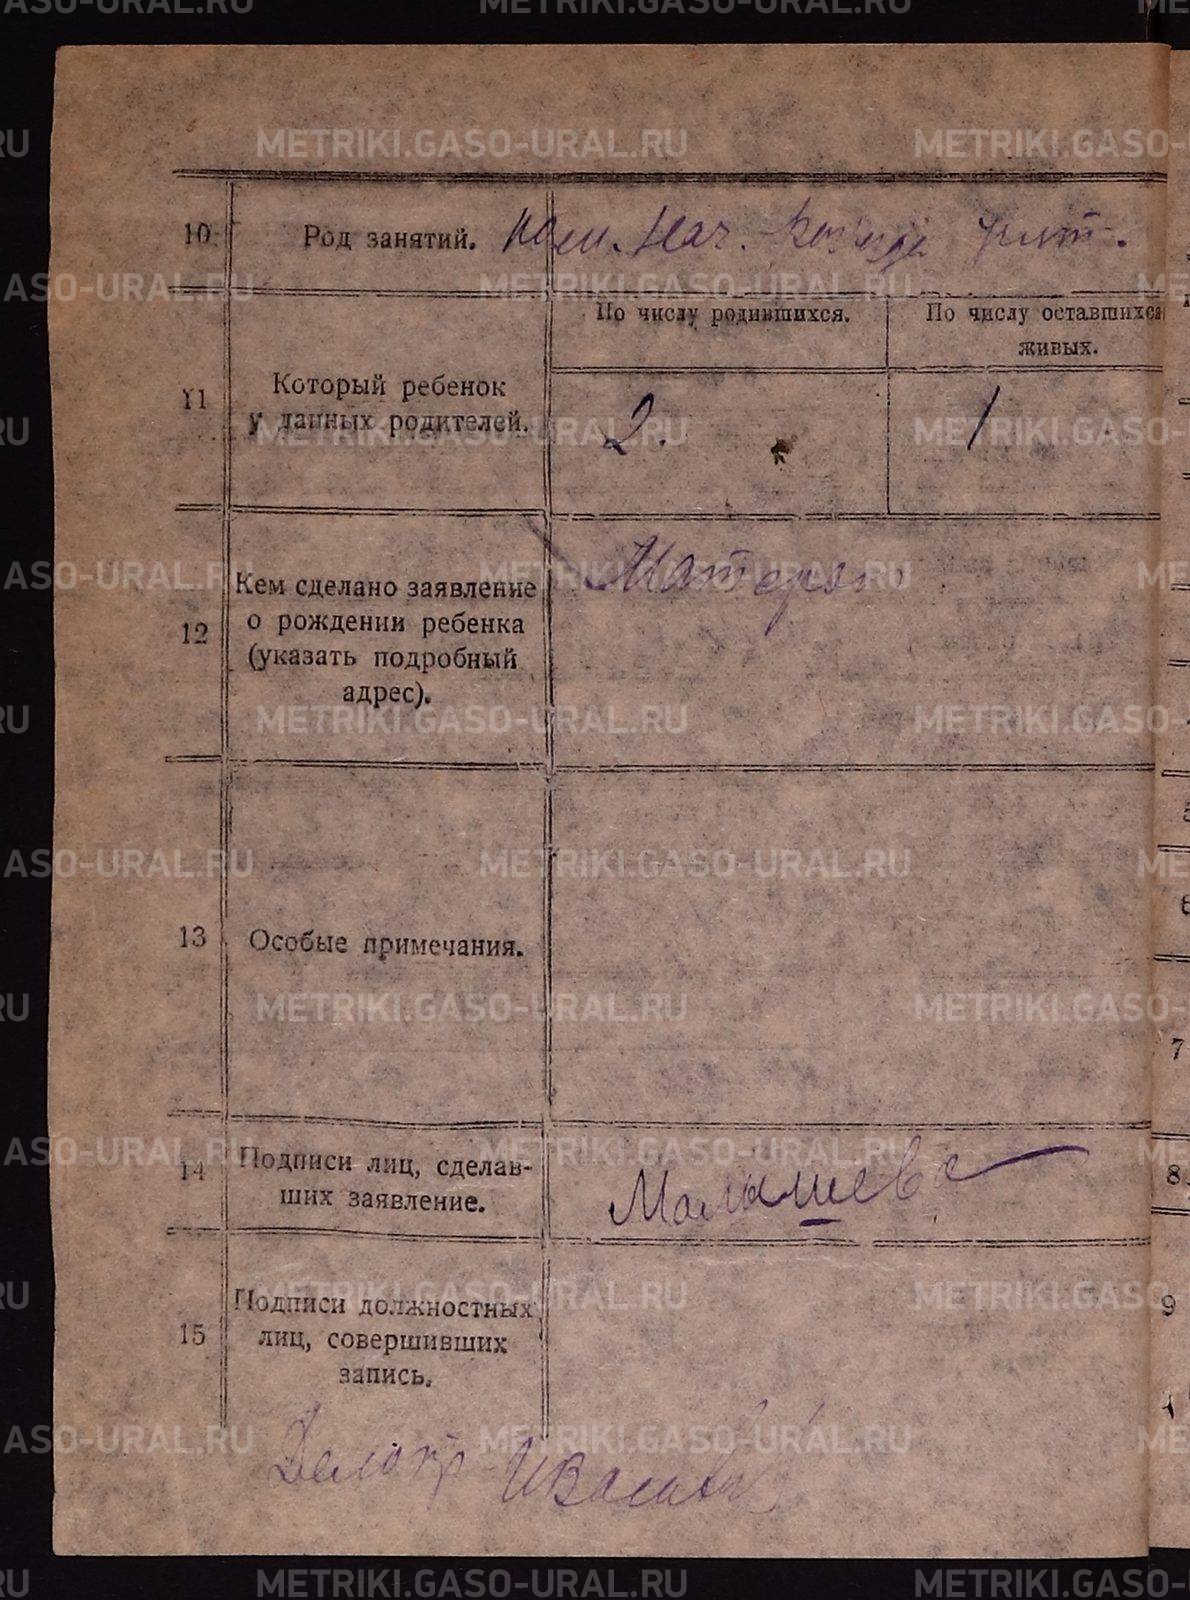 10. Род занятий. Пом. Нач.
По числу родившихся. По числу оставшихся живых.
11 Который ребенок
у данных родителей. 2. 1
12 Кем сделано заявление
о рождении ребенка
(указать подробный
адрес). Матерью
13 Особые примечания.
14 Подписи лиц, сделав-
ших заявление. Малышева
15 Подписи должностных
лиц, совершивших
запись.
Делопр.
5
6
7
8.
9
METRIKI.GASO-URAL.RU